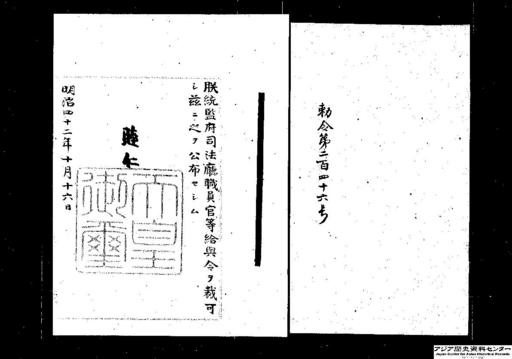 勅令第二百四十六号
朕統監府司法廳職員官等給與令ヲ裁可
シ茲ニ之ヲ公布セシム
睦仁
天皇御璽
明治四十二年十月十六日
アジア歴史資料センター
Japan Center for Asian Historical Records